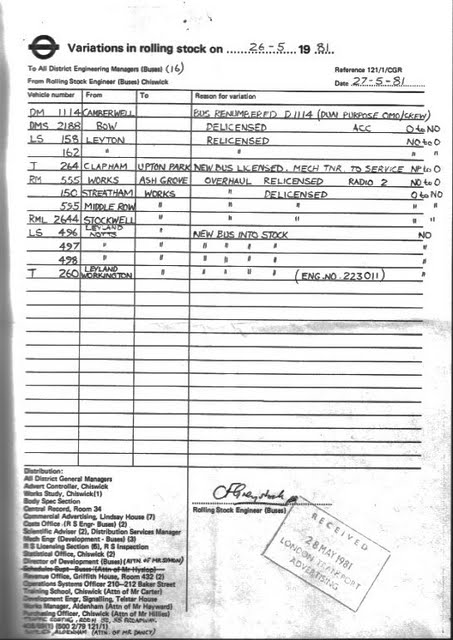 Variations in rolling stock on 26-5 1981.
To All District Engineering Managers (Buses) (16)
Reference 121/1/CGR
From Rolling Stock Engineer (Buses) Chiswick
Date 27-5-81
Vehicle number From To Reason for variation
DM 1114 CAMBERWELL BUS RENUMBERED D1114 (DUAL PURPOSE OMO/CREW)
DMS 2188 BOW DELICENSED ACC O to NO
LS 158 LEYTON RELICENSED NO to O
162 " " " "
T 264 CLAPHAM UPTON PARK NEW BUS LICENSED. MECH TNR. TO SERVICE NP to O
RM 555 WORKS ASH GROVE OVERHAUL RELICENSED RADIO 2 NO to O
150 STREATHAM WORKS " DELICENSED O to NO
595 MIDDLE ROW " " " "
RML 2644 STOCKWELL " " " "
LS 496 LEYLAND NOTTS " NEW BUS INTO STOCK NO
497 " " " " " " "
498 " " " " " " "
T 260 LEYLAND WORKINGTON " " " " " (ENG. NO. 223011) "
Distribution:
All District General Managers
Advert Controller, Chiswick
Works Study, Chiswick(1)
Body Spec Section
Central Record, Room 34
Commercial Advertising, Lindsay House (7)
Costs Office (R S Engr- Buses) (2)
Scientific Adviser (2), Distribution Services Manager
Mech Engr (Development - Buses) (3)
R S Licensing Section (6), R S Inspection
Statistical Office, Chiswick (2)
Director of Development (Buses)
Schedules Dept - Buses (Attn of Mr Hyslop)
Revenue Office, Griffith House, Room 432 (2)
Operations Systems Officer 210-212 Baker Street
Training School, Chiswick (Attn of Mr Carter)
Development Engr, Signalling, Telstar House
Works Manager, Aldenham (Attn of Mr Hayward)
Purchasing Officer, Chiswick (Attn of Mr Hillies)
(500 2/79 121/1)
Rolling Stock Engineer (Buses)
RECEIVED
28 MAY 1981
LONDON TRANSPORT
ADVERTISING